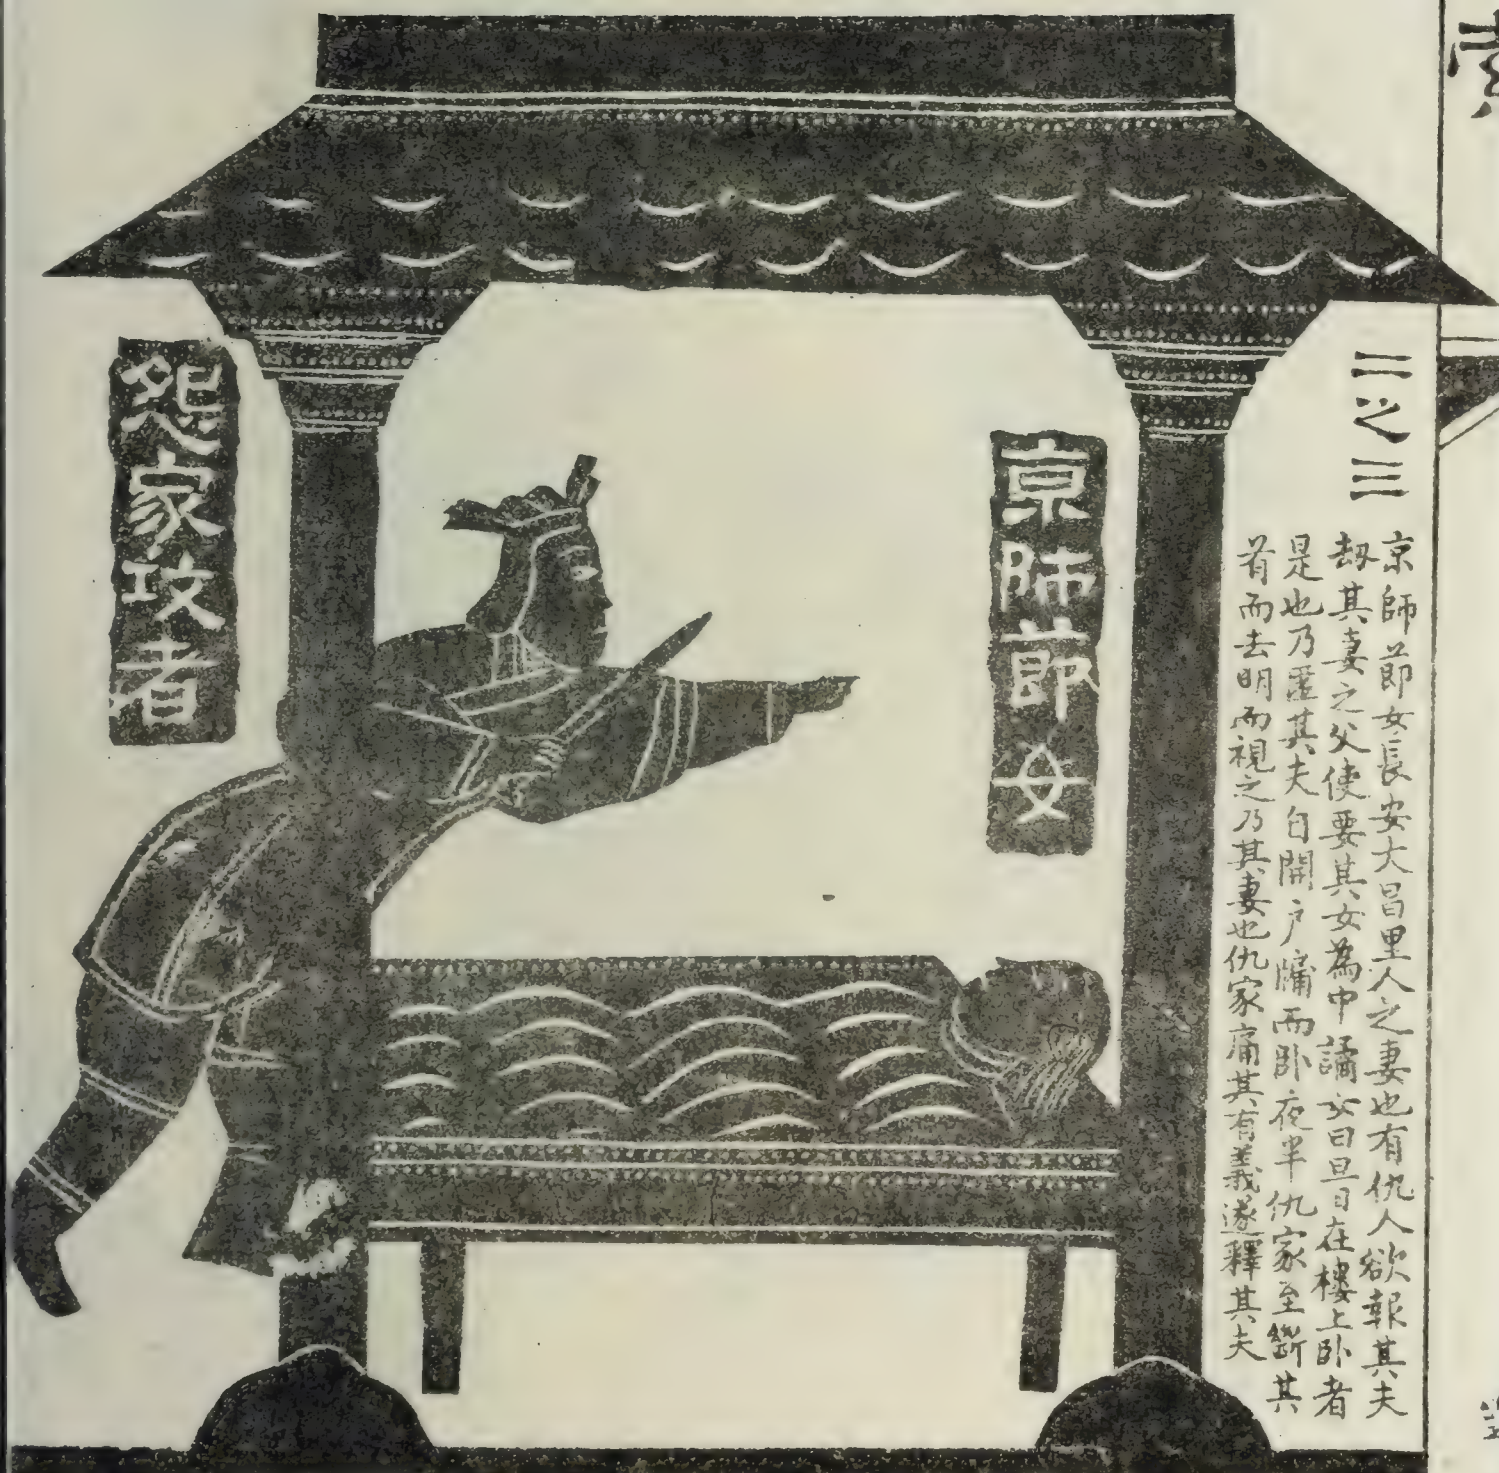 二之三
京師節女長安大昌里人之妻也有仇人欲報其夫
刼其妻之父使要其女為中譎女曰旦日在樓上卧者
是也乃匿其夫自開户牖而卧夜半仇家至斷其
首而去明而視之乃其妻也仇家痛其有義遂釋其夫
京師節女
怨家攻者